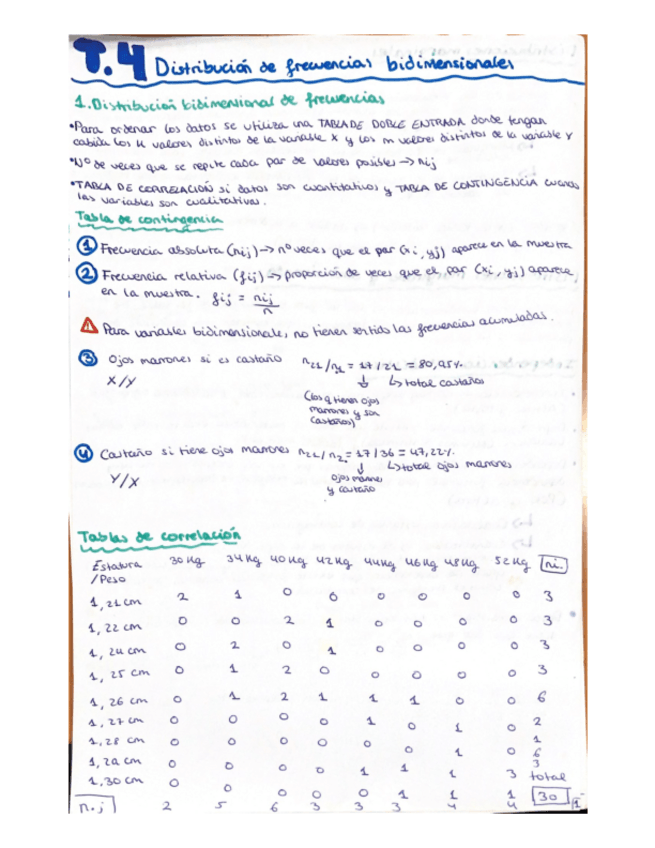 T.4 Distribución de frecuencias bidimensionales
1. Distribución bidimensional de frecuencias
•Para ordenar los datos se utiliza una TABLA DE DOBLE ENTRADA donde tengan
cabida los K valores distintos de la variable X y los m valores distintos de la variable Y
•Nº de veces que se repite cada par de valores posibles → nij
•TABLA DE CORRELACIÓN si datos son cuantitativos y TABLA DE CONTINGENCIA cuando
las variables son cualitativas.
Tabla de contingencia
1 Frecuencia absoluta (nij) → nº veces que el par (xi, yj) aparece en la muestra
2 Frecuencia relativa (fij) → proporción de veces que el par (xi, yj) aparece
en la muestra. fij = nij/n
Para variables bidimensionales, no tienen sentido las frecuencias acumuladas.
3 Ojos marrones si es castaño n21/n.1 = 17/21 = 80,95%
X/Y ↳ total castaños
(los q tienen ojos
marrones y son
castaños)
4 Castaño si tiene ojos marrones n21/n2. = 17/36 = 47,22%
↳ total ojos marrones
Y/X ojos marrones
y castaño
Tablas de correlación
Estatura 30 Kg 34 Kg 40 Kg 42 Kg 44 Kg 46 Kg 48 Kg 52 Kg ni.
/Peso
1,21 cm 2 1 0 0 0 0 0 0 3
1,22 cm 0 0 2 1 0 0 0 0 3
1,24 cm 0 2 0 1 0 0 0 0 3
1,25 cm 0 1 2 0 0 0 0 0 3
1,26 cm 0 1 2 1 1 1 0 0 6
1,27 cm 0 0 0 0 1 0 1 0 2
1,28 cm 0 0 0 0 0 0 1 0 1
6
1,29 cm 0 0 0 0 1 1 1 3 3
total
1,30 cm 0 0 0 0 0 1 1 1
n.j 2 5 6 3 3 3 4 4 30
1